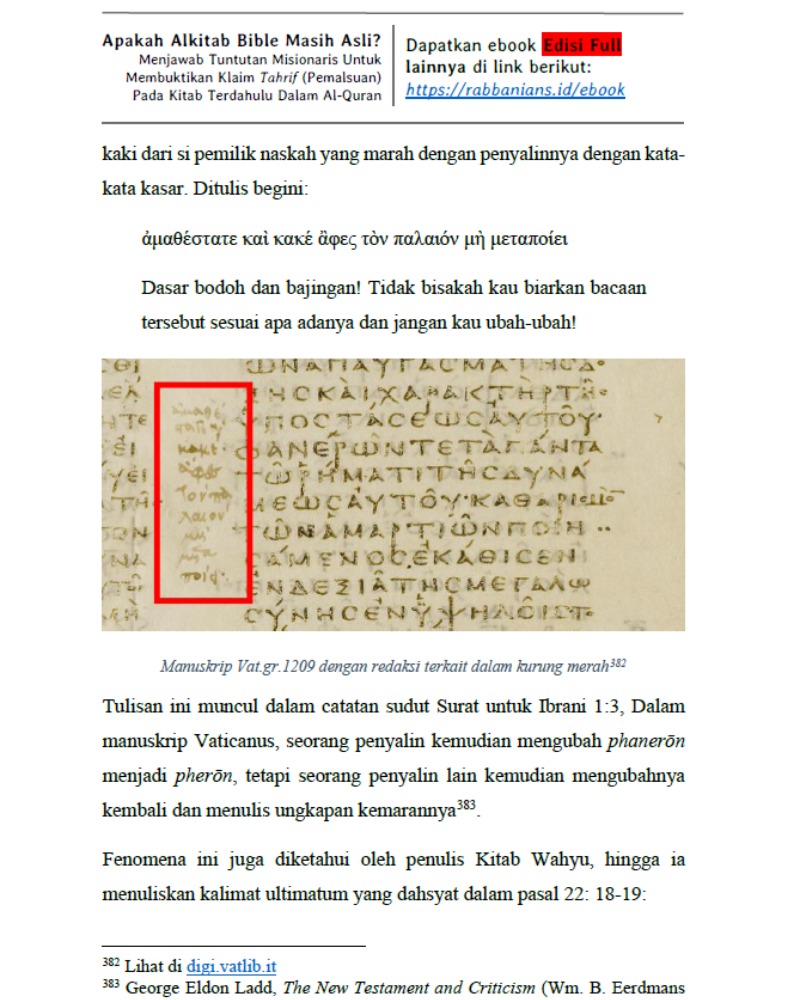 Apakah Alkitab Bible Masih Asli?
Menjawab Tuntutan Misionaris Untuk
Membuktikan Klaim Tahrif (Pemalsuan)
Pada Kitab Terdahulu Dalam Al-Quran
Dapatkan ebook Edisi Full
lainnya di link berikut:
https://rabbanians.id/ebook
kaki dari si pemilik naskah yang marah dengan penyalinnya dengan kata-
kata kasar. Ditulis begini:
ἀμαθέστατε καὶ κακέ ἄφες τὸν παλαιόν μὴ μεταποίει
Dasar bodoh dan bajingan! Tidak bisakah kau biarkan bacaan
tersebut sesuai apa adanya dan jangan kau ubah-ubah!
ΤΗϹΚΑΙΧΑΡΑΚΤΗΡΤΗ
ΥΠΟϹΤΑϹΕΩϹΑΥΤΟΥ
ΦΑΝΕΡΩΝΤΕΤΑΠΑΝΤΑ
ΤΩΡΗΜΑΤΙΤΗϹΔΥΝΑ
ΜΕΩϹΑΥΤΟΥ·ΚΑΘΑΡΙϹΜΟ
ΤΩΝΑΜΑΡΤΙΩΝΠΟΙΗ
ϹΑΜΕΝΟϹΕΚΑΘΙϹΕΝ
ΕΝΔΕΞΙΑΤΗϹΜΕΓΑΛΩ
ϹΥΝΗϹΕΝΥΨΗΛΟΙϹΤ
Manuskrip Vat.gr.1209 dengan redaksi terkait dalam kurung merah382
Tulisan ini muncul dalam catatan sudut Surat untuk Ibrani 1:3, Dalam
manuskrip Vaticanus, seorang penyalin kemudian mengubah phanerōn
menjadi pherōn, tetapi seorang penyalin lain kemudian mengubahnya
kembali dan menulis ungkapan kemarannya383.
Fenomena ini juga diketahui oleh penulis Kitab Wahyu, hingga ia
menuliskan kalimat ultimatum yang dahsyat dalam pasal 22: 18-19:
382 Lihat di digi.vatlib.it
383 George Eldon Ladd, The New Testament and Criticism (Wm. B. Eerdmans